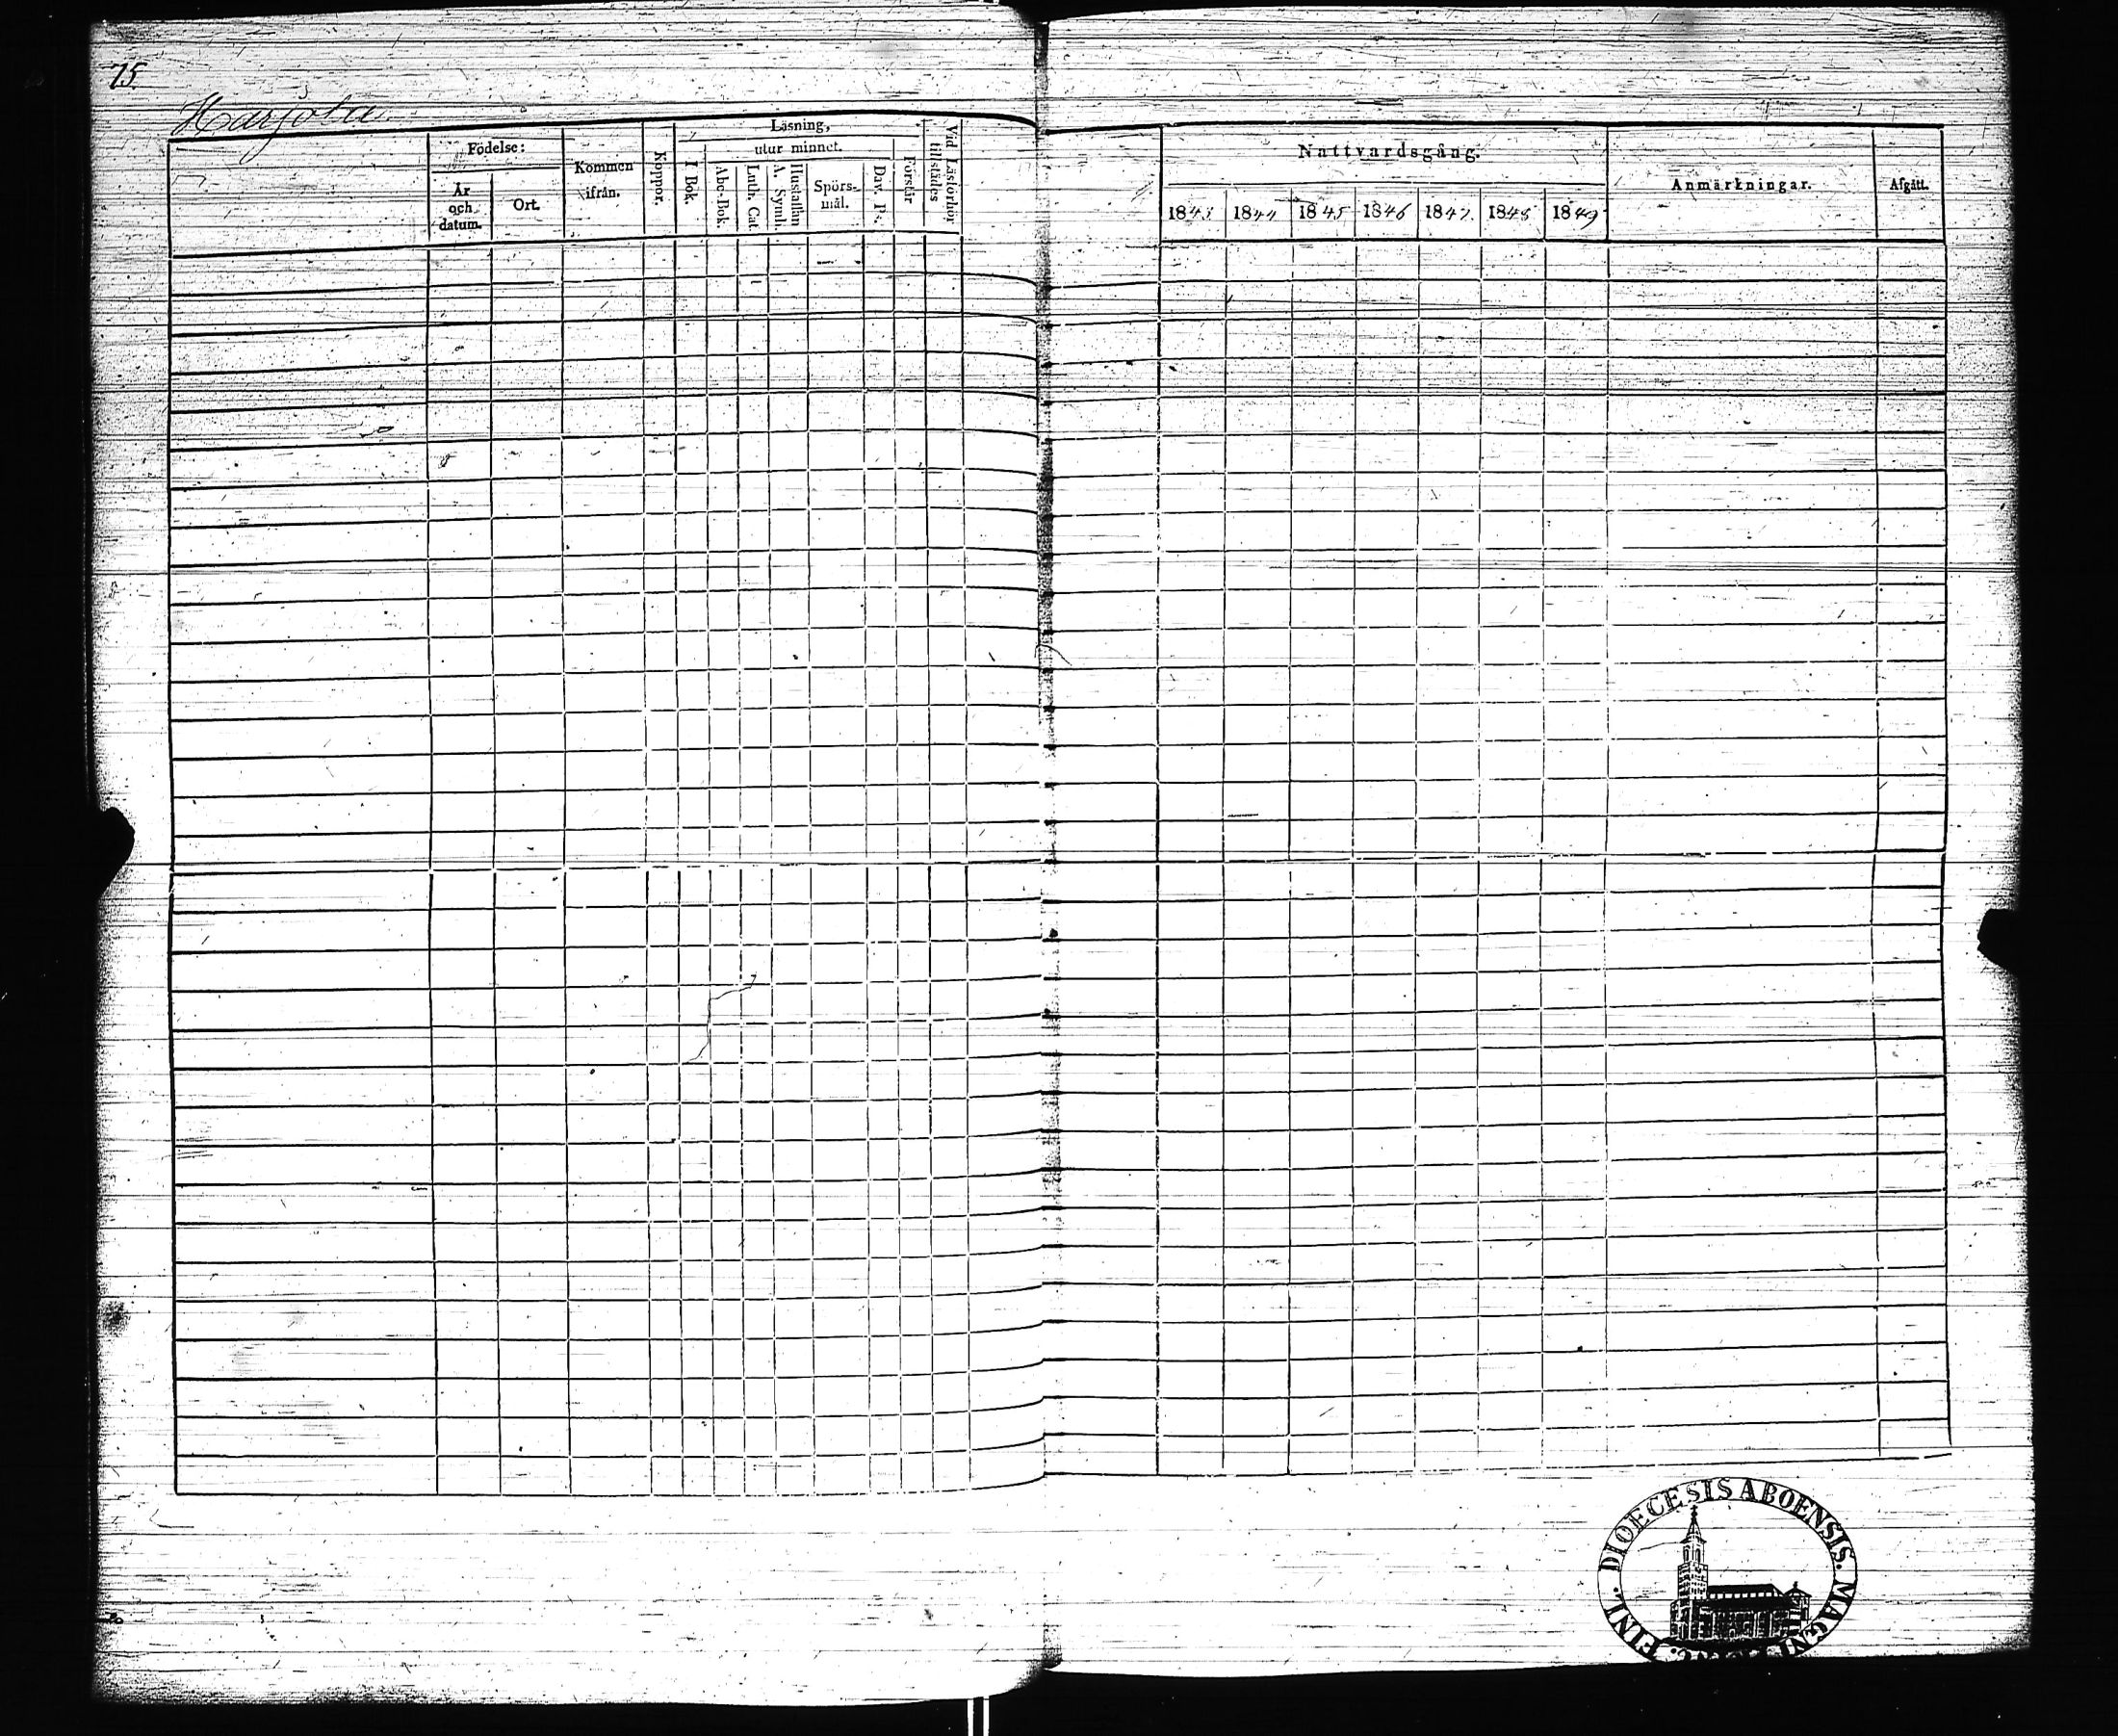 75.
Harjola
Födelse:
År och datum.
Ort.
Kommen ifrån.
Koppor.
Läsning,
utur minnet.
I Bok.
Abc-Bok.
Luth. Cat.
A. Symb.
Hustaflan
Spörsmål.
Dav. Ps.
Förstår
Vid Läsförhör tillstädes
Nattvardsgång.
1843
1844
1845
1846
1847.
1848
1849
Anmärkningar.
Afgått.
DIOECESIS ABOENSIS. MAGNI FINL.